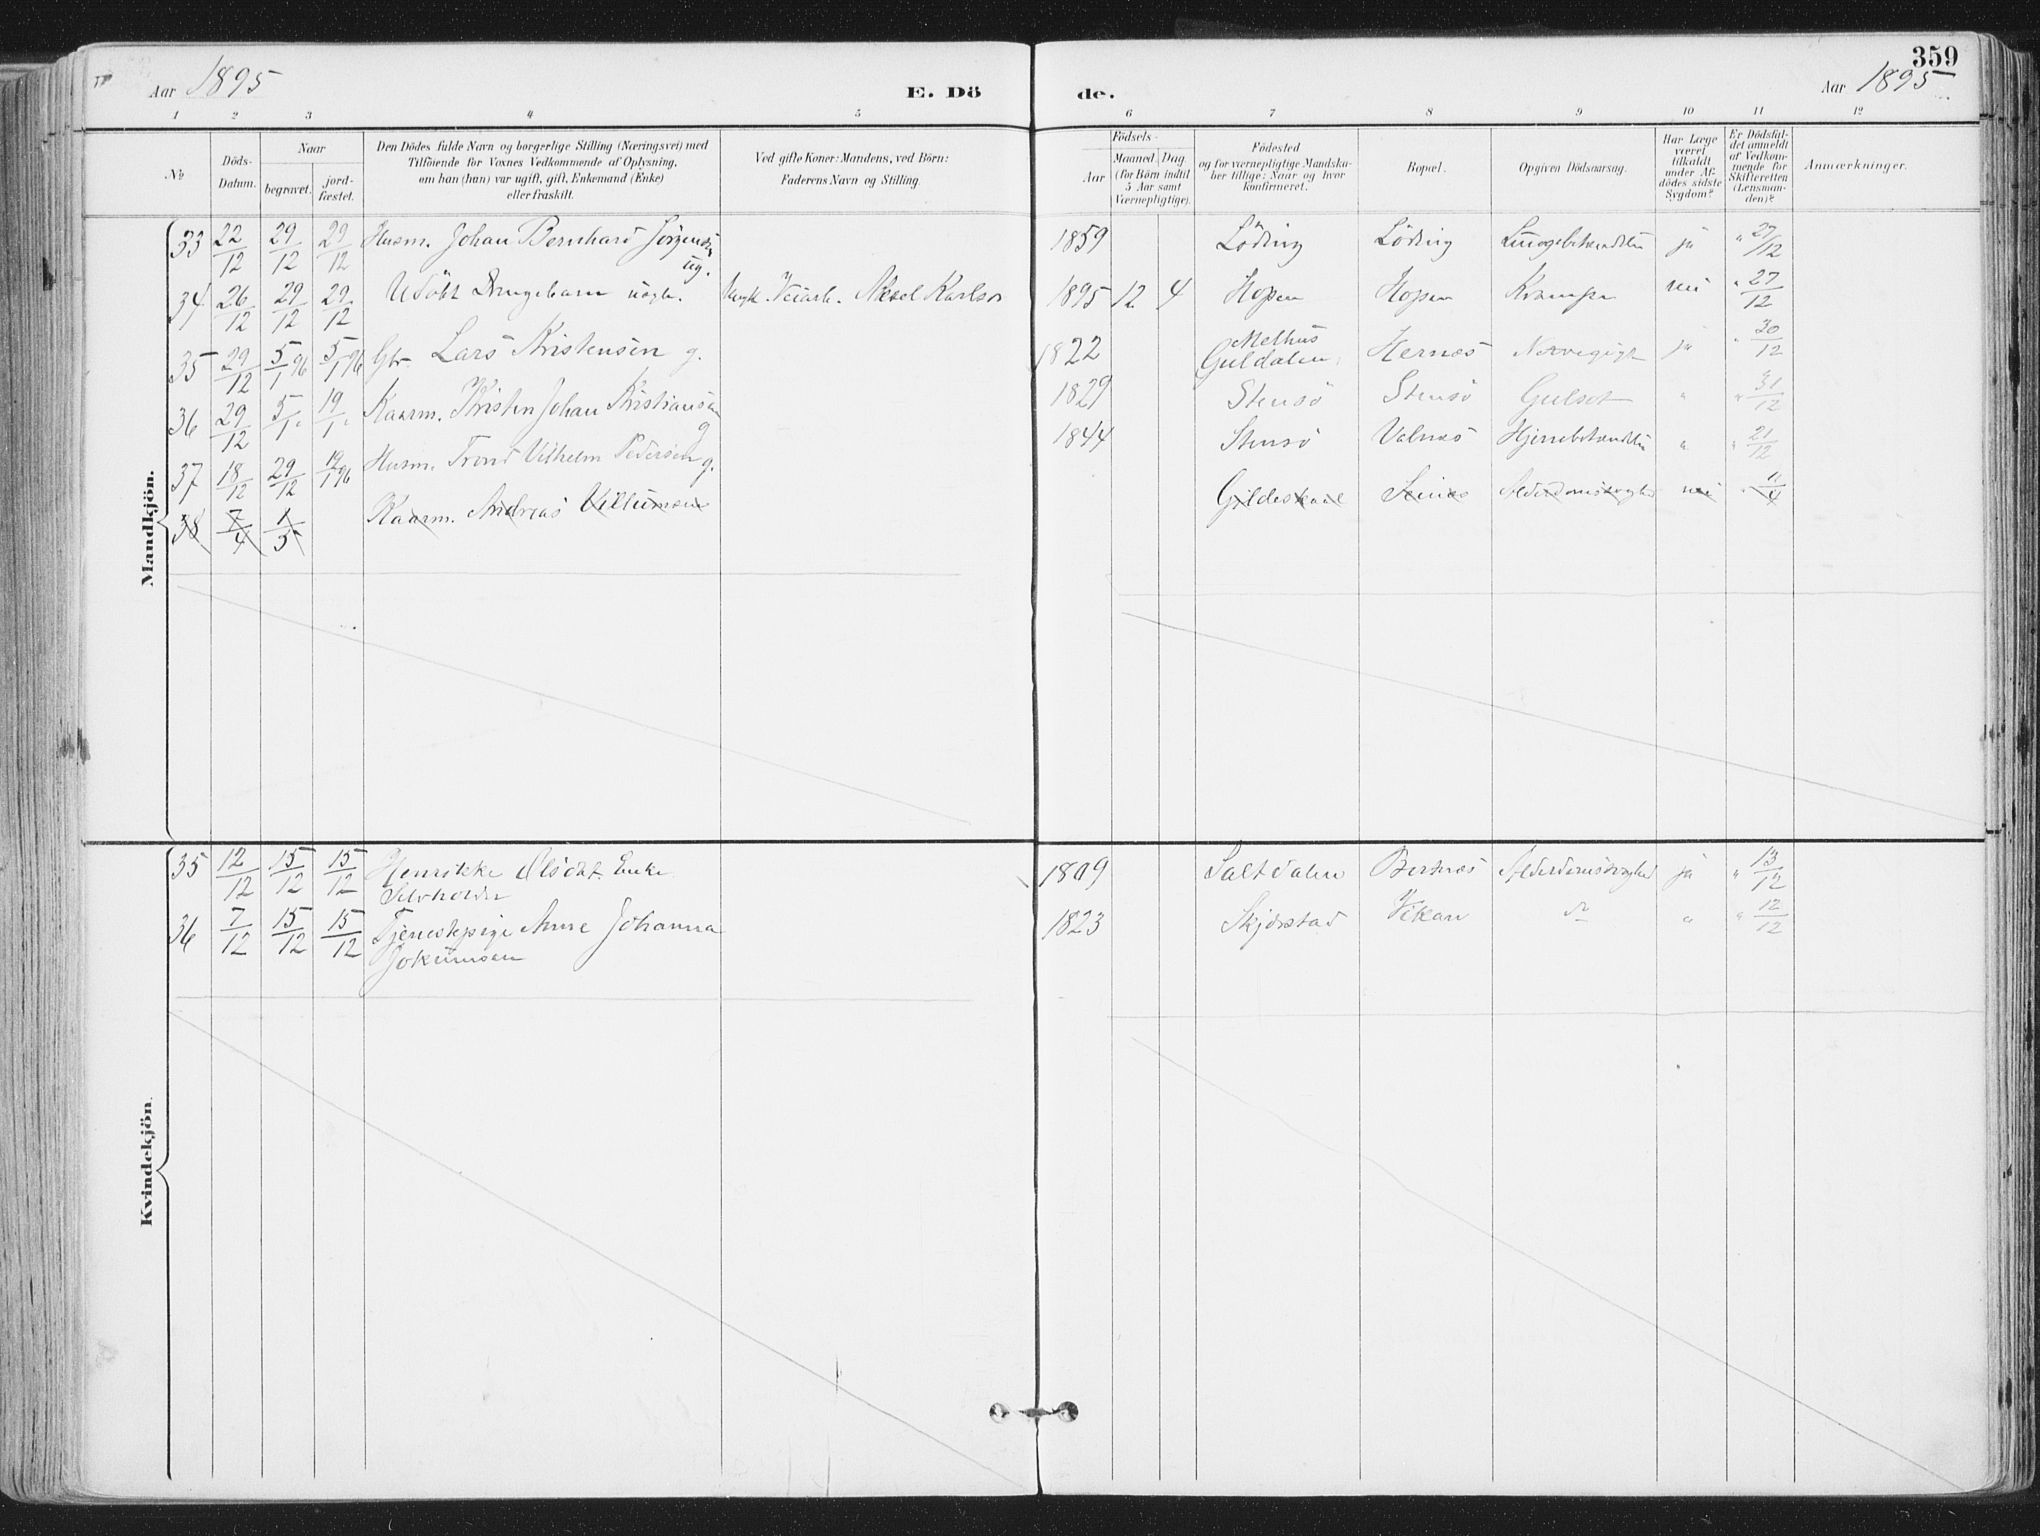 359
Aar 1895
E. Dö
de.
Aar 1895
1 2 3 4 5 6 7 8 9 10 11 12
No
Döds-Datum.
Naar
begravet.
jord-fæstet.
Den Dödes fulde Navn og borgerlige Stilling (Næringsvei) med
Tilföiende for Voxnes Vedkommende af Oplysning,
om han (hun) var ugift, gift, Enkemand (Enke)
eller fraskilt.
Ved gifte Koner: Mandens, ved Börn:
Faderens Navn og Stilling.
Födsels-
Aar
Maaned. Dag.
(for Börn indtil
5 Aar samt
Værnepligtige).
Födested
og for værnepligtige Mandska-
ber tillige: Naar og hvor
konfirmeret.
Bopæl.
Opgiven Dödsaarsag.
Har Læge
været
tilkaldt
under Af-
dödes sidste
Sygdom?
Er Dödsfal-
det anmeldt
af Vedkom-
mende for
Skifteretten
(Lensman-
den)?
Anmærkninger.
Mandkjön.
33 22/12 29/12 29/12 Husm. Johan Bernhard Jörgensen ug. 1859 Löding Löding ja " 27/12
34 26/12 29/12 29/12 Udöbt Drengebarn uægte. Karlsen 1895 12 4 Hopen Hopen Krampe nei " 27/12
35 29/12 5/1 96 5/1 96 Gbr. Lars Kristensen g. 1822 Melhus Guldalen Hernes ja " 30/12
36 29/12 5/1 19/1 Kaarm. Kristen Johan Kristiansen g 1829 Stensö Stensö Gulsot " " 31/12
37 18/12 29/12 19/1 96 Husm. Trond Vilhelm Pedersen g. 1844 Stensö Valnes Hjernebetændelse " " 21/12
38 7/4 1/5 Kaarm. Andreas Villumsen Gildeskaal Seines Alderdomssvaghed nei " 11/4
Kvindekjön.
35 12/12 15/12 15/12 Henrikke Olsdat. Enke
Selvholder 1809 Saltdalen Bertnes Alderdomssvaghed ja " 13/12
36 7/12 15/12 15/12 Tjenestepige Anne Johanna
Jokumsen 1823 Skjerstad Vikan do " " 12/12